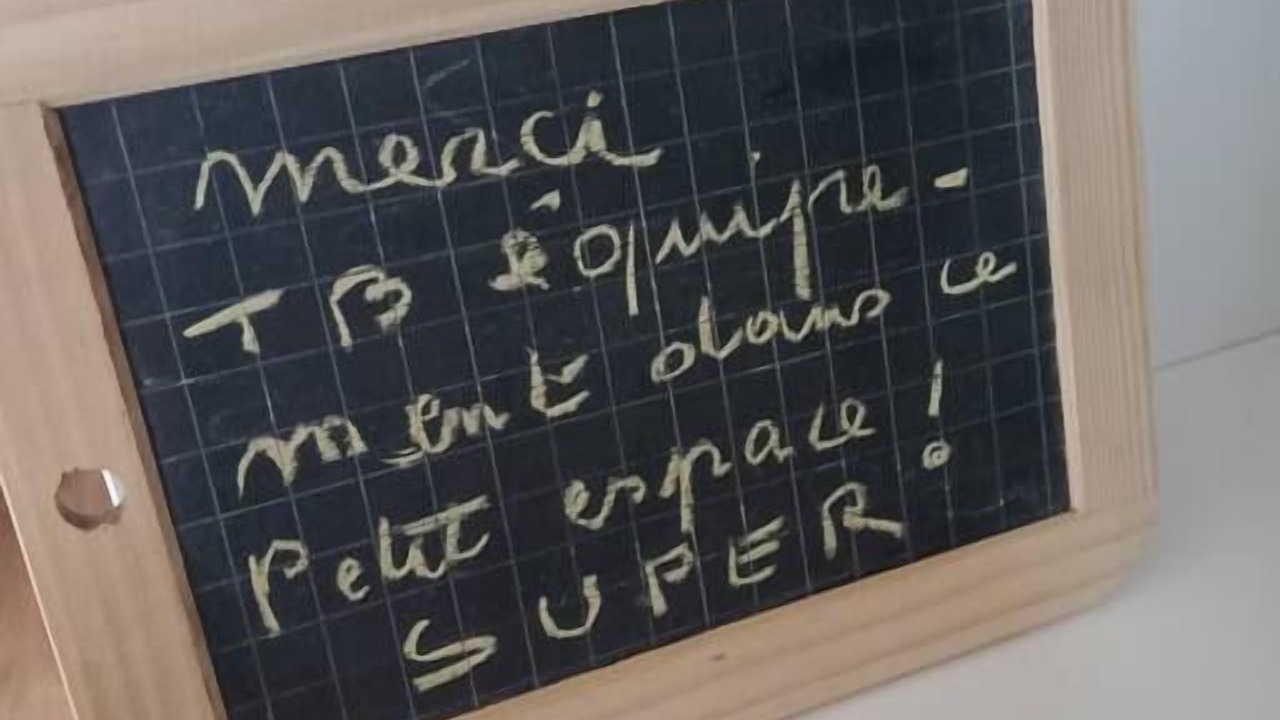 merci
TB équipe-
ment dans ce
Petit espace !
SUPER